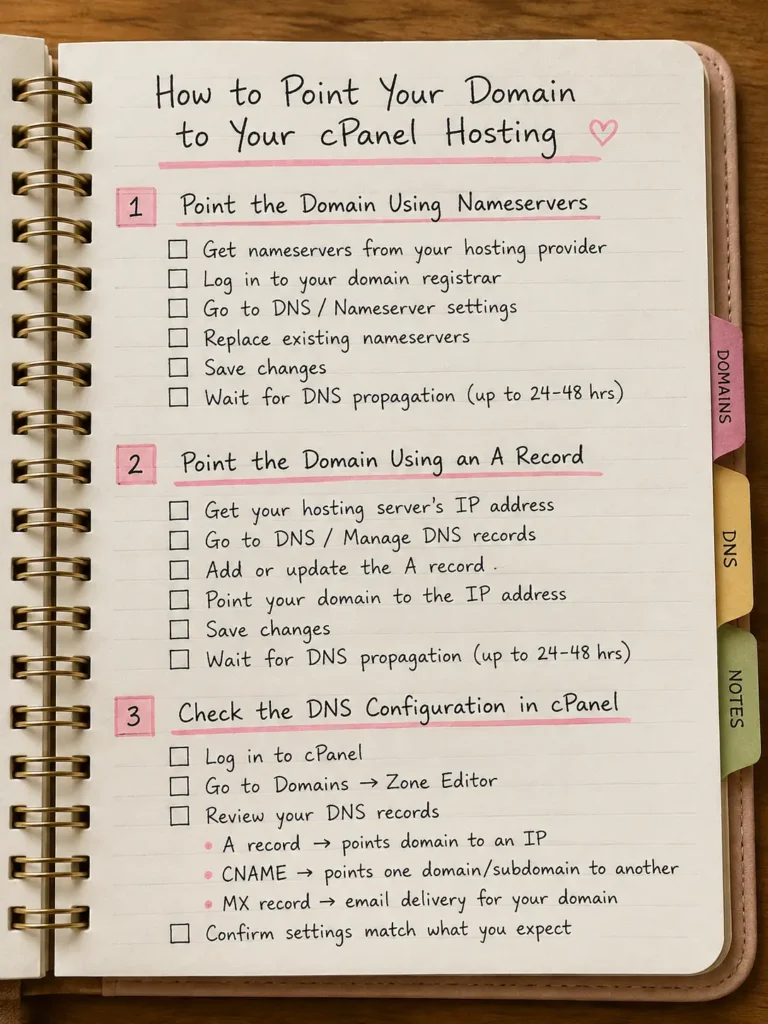 How to Point Your Domain
to Your cPanel Hosting ♡
1 Point the Domain Using Nameservers
☐ Get nameservers from your hosting provider
☐ Log in to your domain registrar
☐ Go to DNS / Nameserver settings
☐ Replace existing nameservers
☐ Save changes
☐ Wait for DNS propagation (up to 24–48 hrs)
2 Point the Domain Using an A Record
☐ Get your hosting server's IP address
☐ Go to DNS / Manage DNS records
☐ Add or update the A record .
☐ Point your domain to the IP address
☐ Save changes
☐ Wait for DNS propagation (up to 24–48 hrs)
3 Check the DNS Configuration in cPanel
☐ Log in to cPanel
☐ Go to Domains → Zone Editor
☐ Review your DNS records
• A record → points domain to an IP
• CNAME → points one domain/subdomain to another
• MX record → email delivery for your domain
☐ Confirm settings match what you expect
DOMAINS
DNS
NOTES